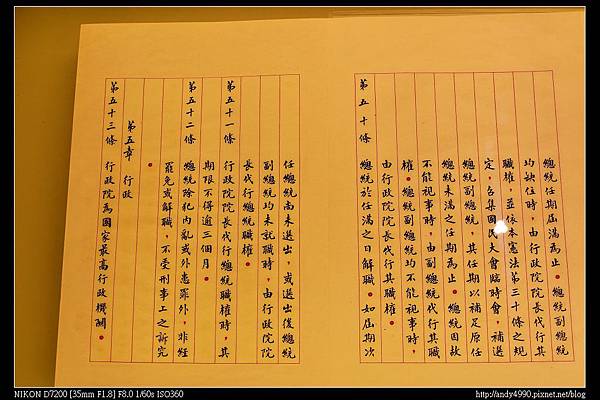 總統任期屆滿為止。總統副總統
均缺位時，由行政院院長代行其
職權，並依本憲法第三十條之規
定，召集國民大會臨時會，補選
總統副總統，其任期以補足原任
總統未滿之任期為止。總統因故
不能視事時，由副總統代行其職
權。總統副總統均不能視事時，
由行政院院長代行其職權。
第五十條 總統於任滿之日解職。如屆期次
任總統尚未選出，或選出後總統
副總統均未就職時，由行政院院
長代行總統職權。
第五十一條 行政院院長代行總統職權時，其
期限不得逾三個月。
第五十二條 總統除犯內亂或外患罪外，非經
罷免或解職，不受刑事上之訴究
。
第五章 行政
第五十三條 行政院為國家最高行政機關。
NIKON D7200 [35mm F1.8] F8.0 1/60s ISO360
http://andy4990.pixnet.net/blog